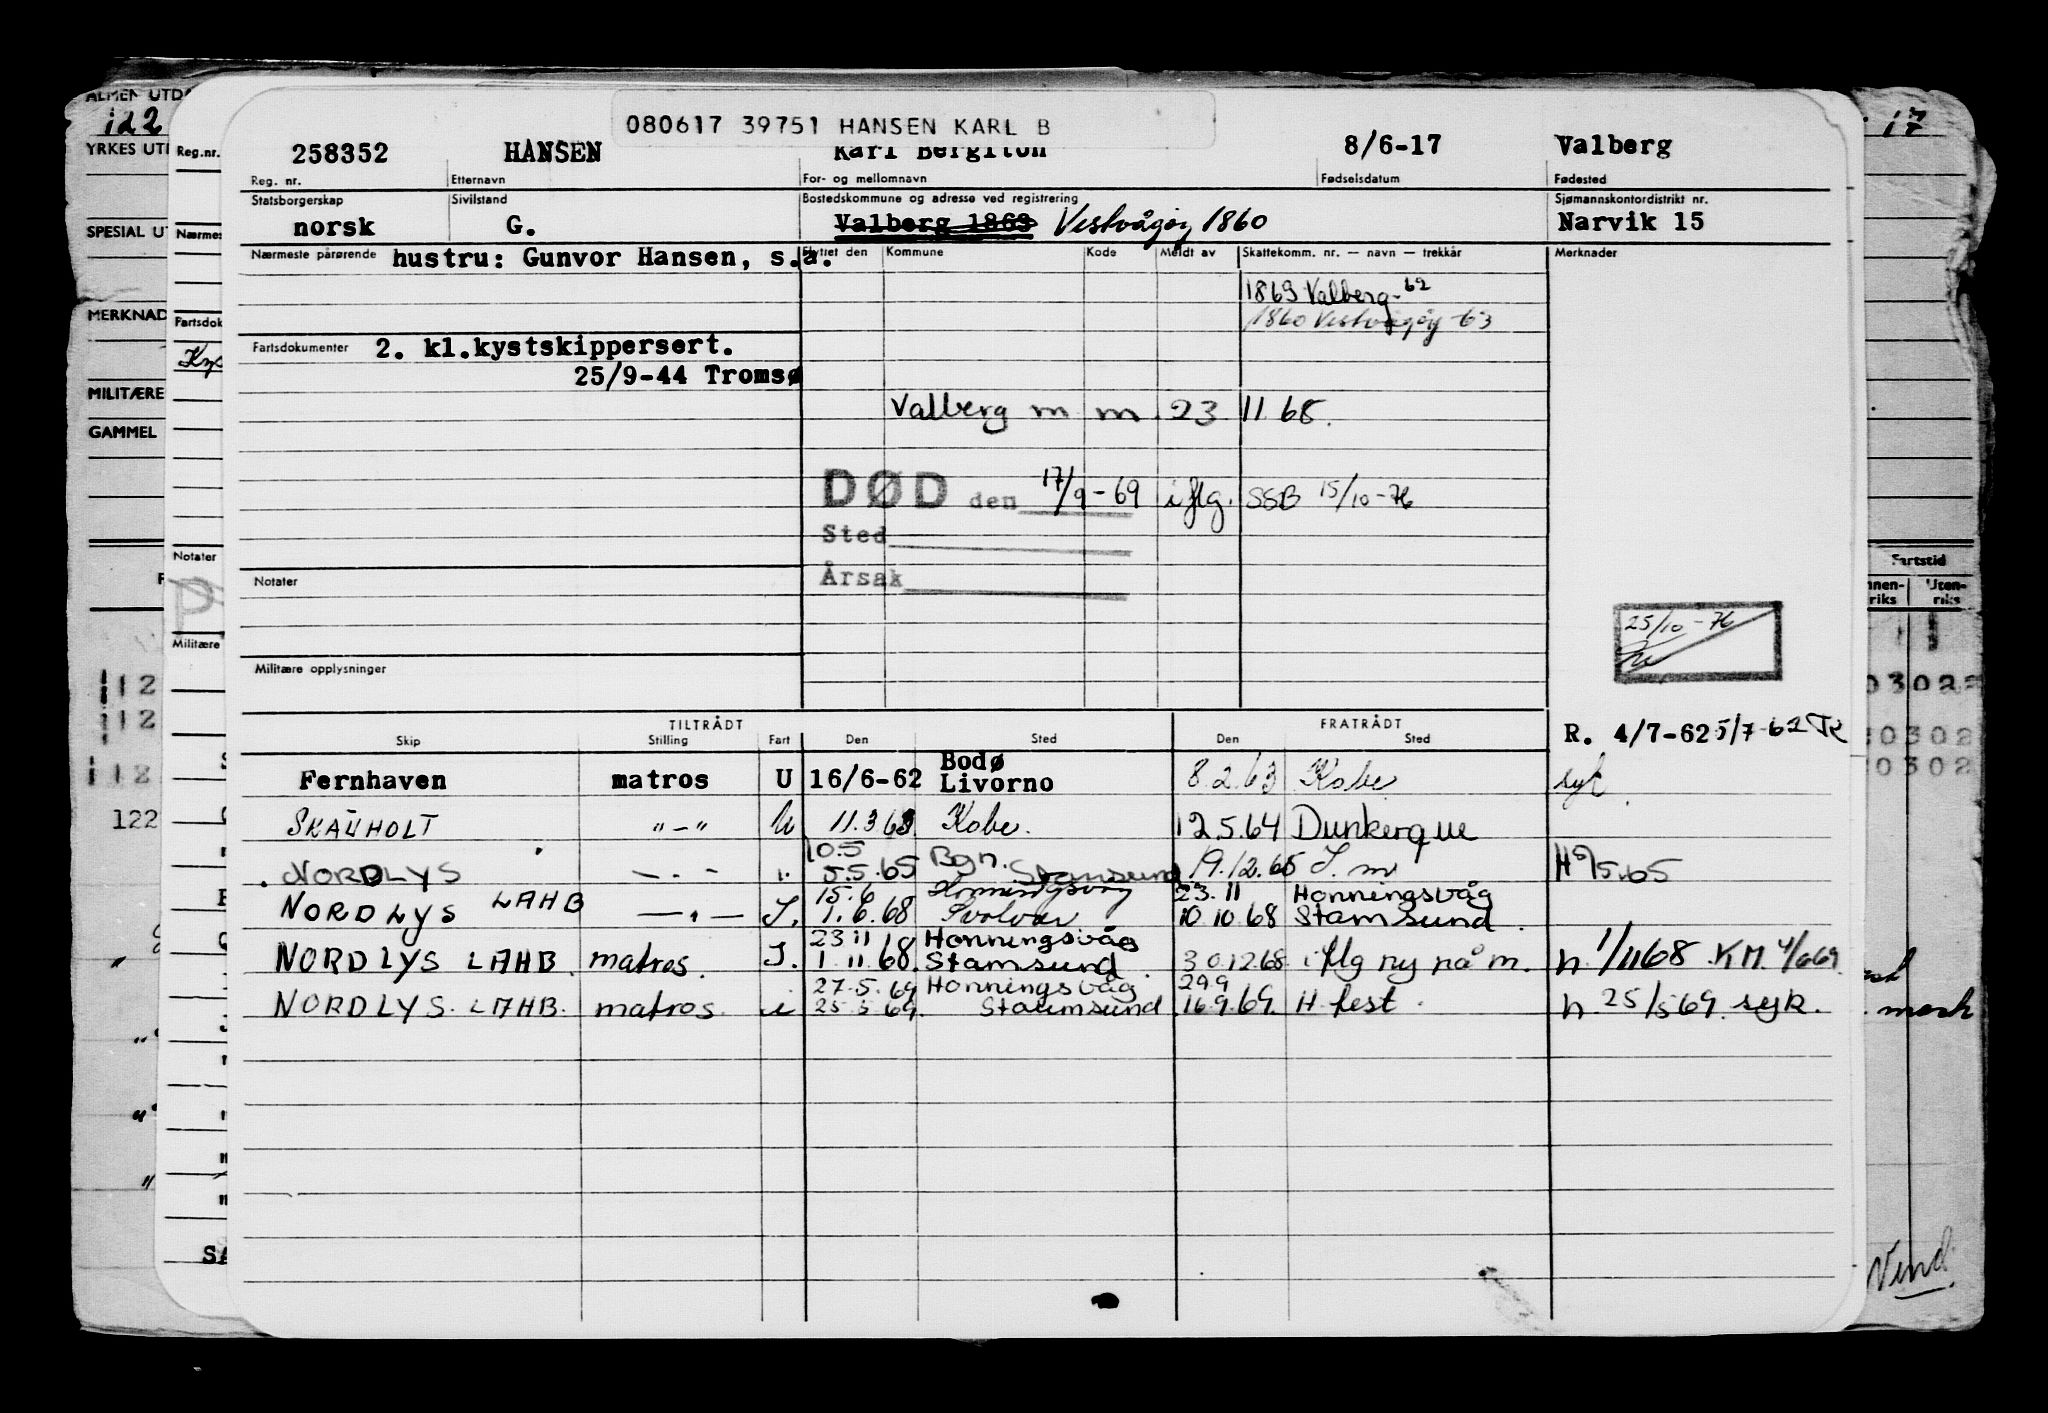 080617 39751 HANSEN KARL B
258352 HANSEN Karl Bergiton 8/6-17 Valberg
Reg. nr. Etternavn For- og mellomnavn Fødselsdatum Fødested
Statsborgerskap Sivilstand Bostedskommune og adresse ved registrering Sjømannskontordistrikt nr.
norsk G. Valberg 1863 Vestvågøy 1860 Narvik 15
Nærmeste pårørende hustru: Gunvor Hansen, s.a. Flyttet den Kommune Kode Meldt av Skattekomm. nr. — navn — trekkår Merknader
1863 Valberg-62
1860 Vestvågøy -63
Fartsdokumenter 2. kl.kystskippersert.
25/9-44 Tromsø
Valberg m m 23 11 68.
DØD den 17/9-69 iflg. SSB 15/10-76
Sted
Årsak
Notater
25/10-76
Militære opplysninger
TILTRÅDT FRATRÅDT
Skip Stilling Fart Den Sted Den Sted R. 4/7-62 5/7-62
Fernhaven matros U 16/6-62 Bodø Livorno 8.2.63 Kobe syk.
SKAUHOLT "-" U 11.3.63 Kobe. 12.5.64 Dunkerque
10.5 Bgn.
NORDLYS -.- i. 5.5.65 Stamsund 19.12.65 S.m
15.6 Honningsvåg 23.11 Honningsvåg
NORDLYS LAHB -"- I. 1.6.68 Svolvær 10.10.68 Stamsund.
23 11 Honningsvåg
NORDLYS LAHB. matros. I. 1.11.68. Stamsund. 30.12.68. iflg ny på m. n. 1/11 68. KM. 4/6 69.
27.5.69 Honningsvåg 29.9
NORDLYS. LAHB. matros. i 25.5.69. Stamsund 16.9.69. H.fest. n. 25/5 69. syk.
ALMEN UTD
YRKES UT
SPECIAL UT
MERKNAD
MILITÆRE
GAMMEL
Reg.nr.
Nærmes
Fartsdok
Notater
Militære
112
112
112
122
17
Fartstid
Uten-
riks riks
mask
Vend.